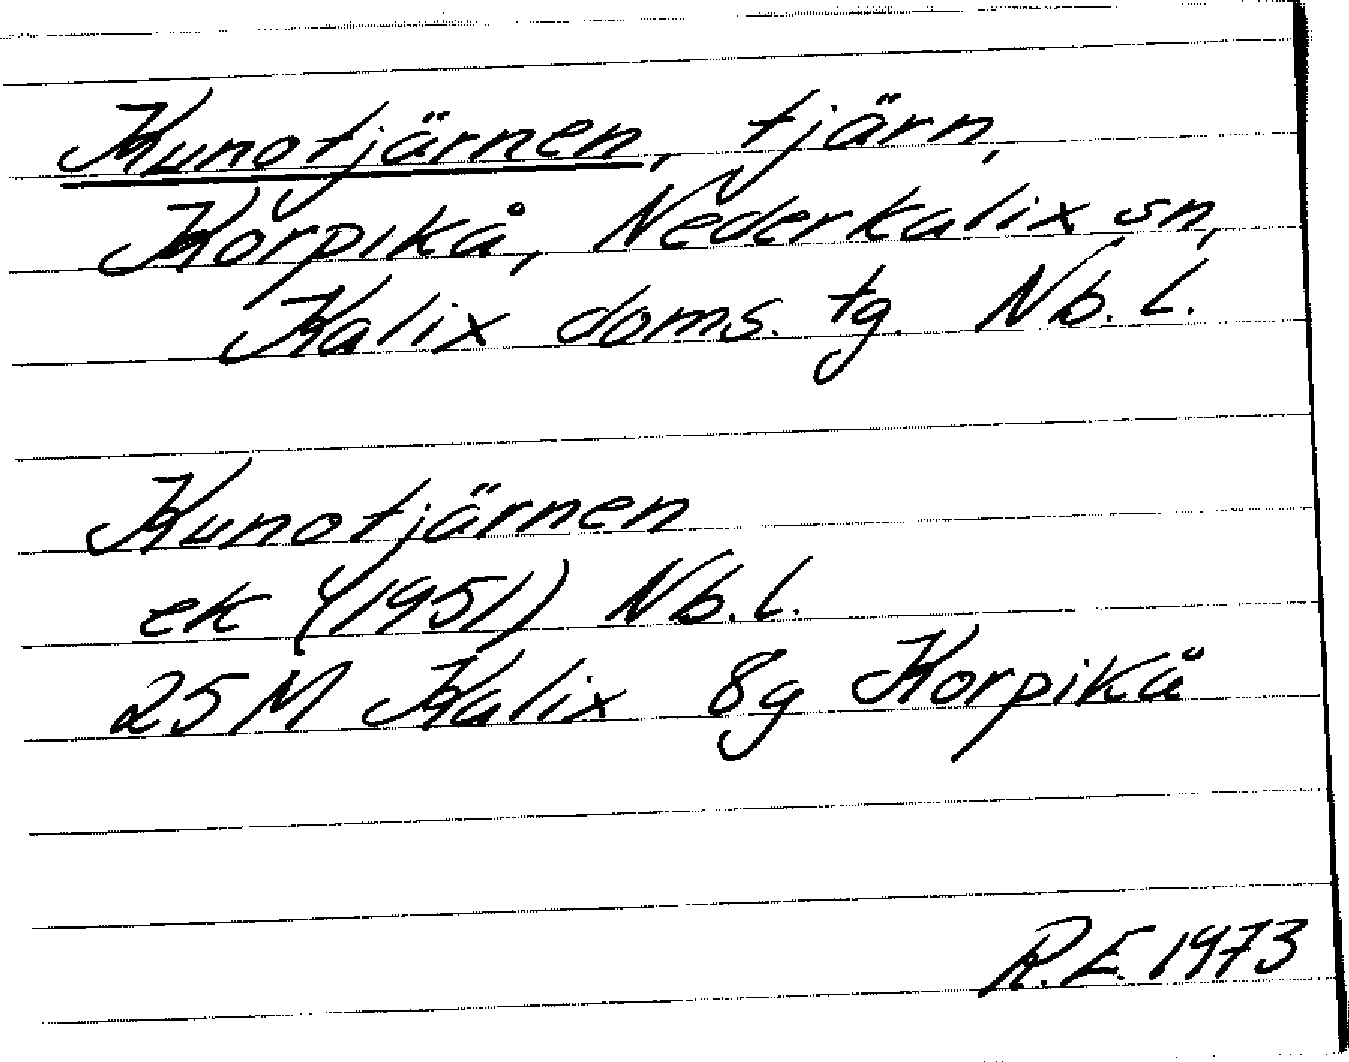 Kunotjärnen, tjärn,
Korpikå, Nederkalix sn,
Kalix doms. tg. Nb. l.
Kunotjärnen
ek (1951) Nb. l.
25M Kalix 8g Korpikå
R.E. 1973